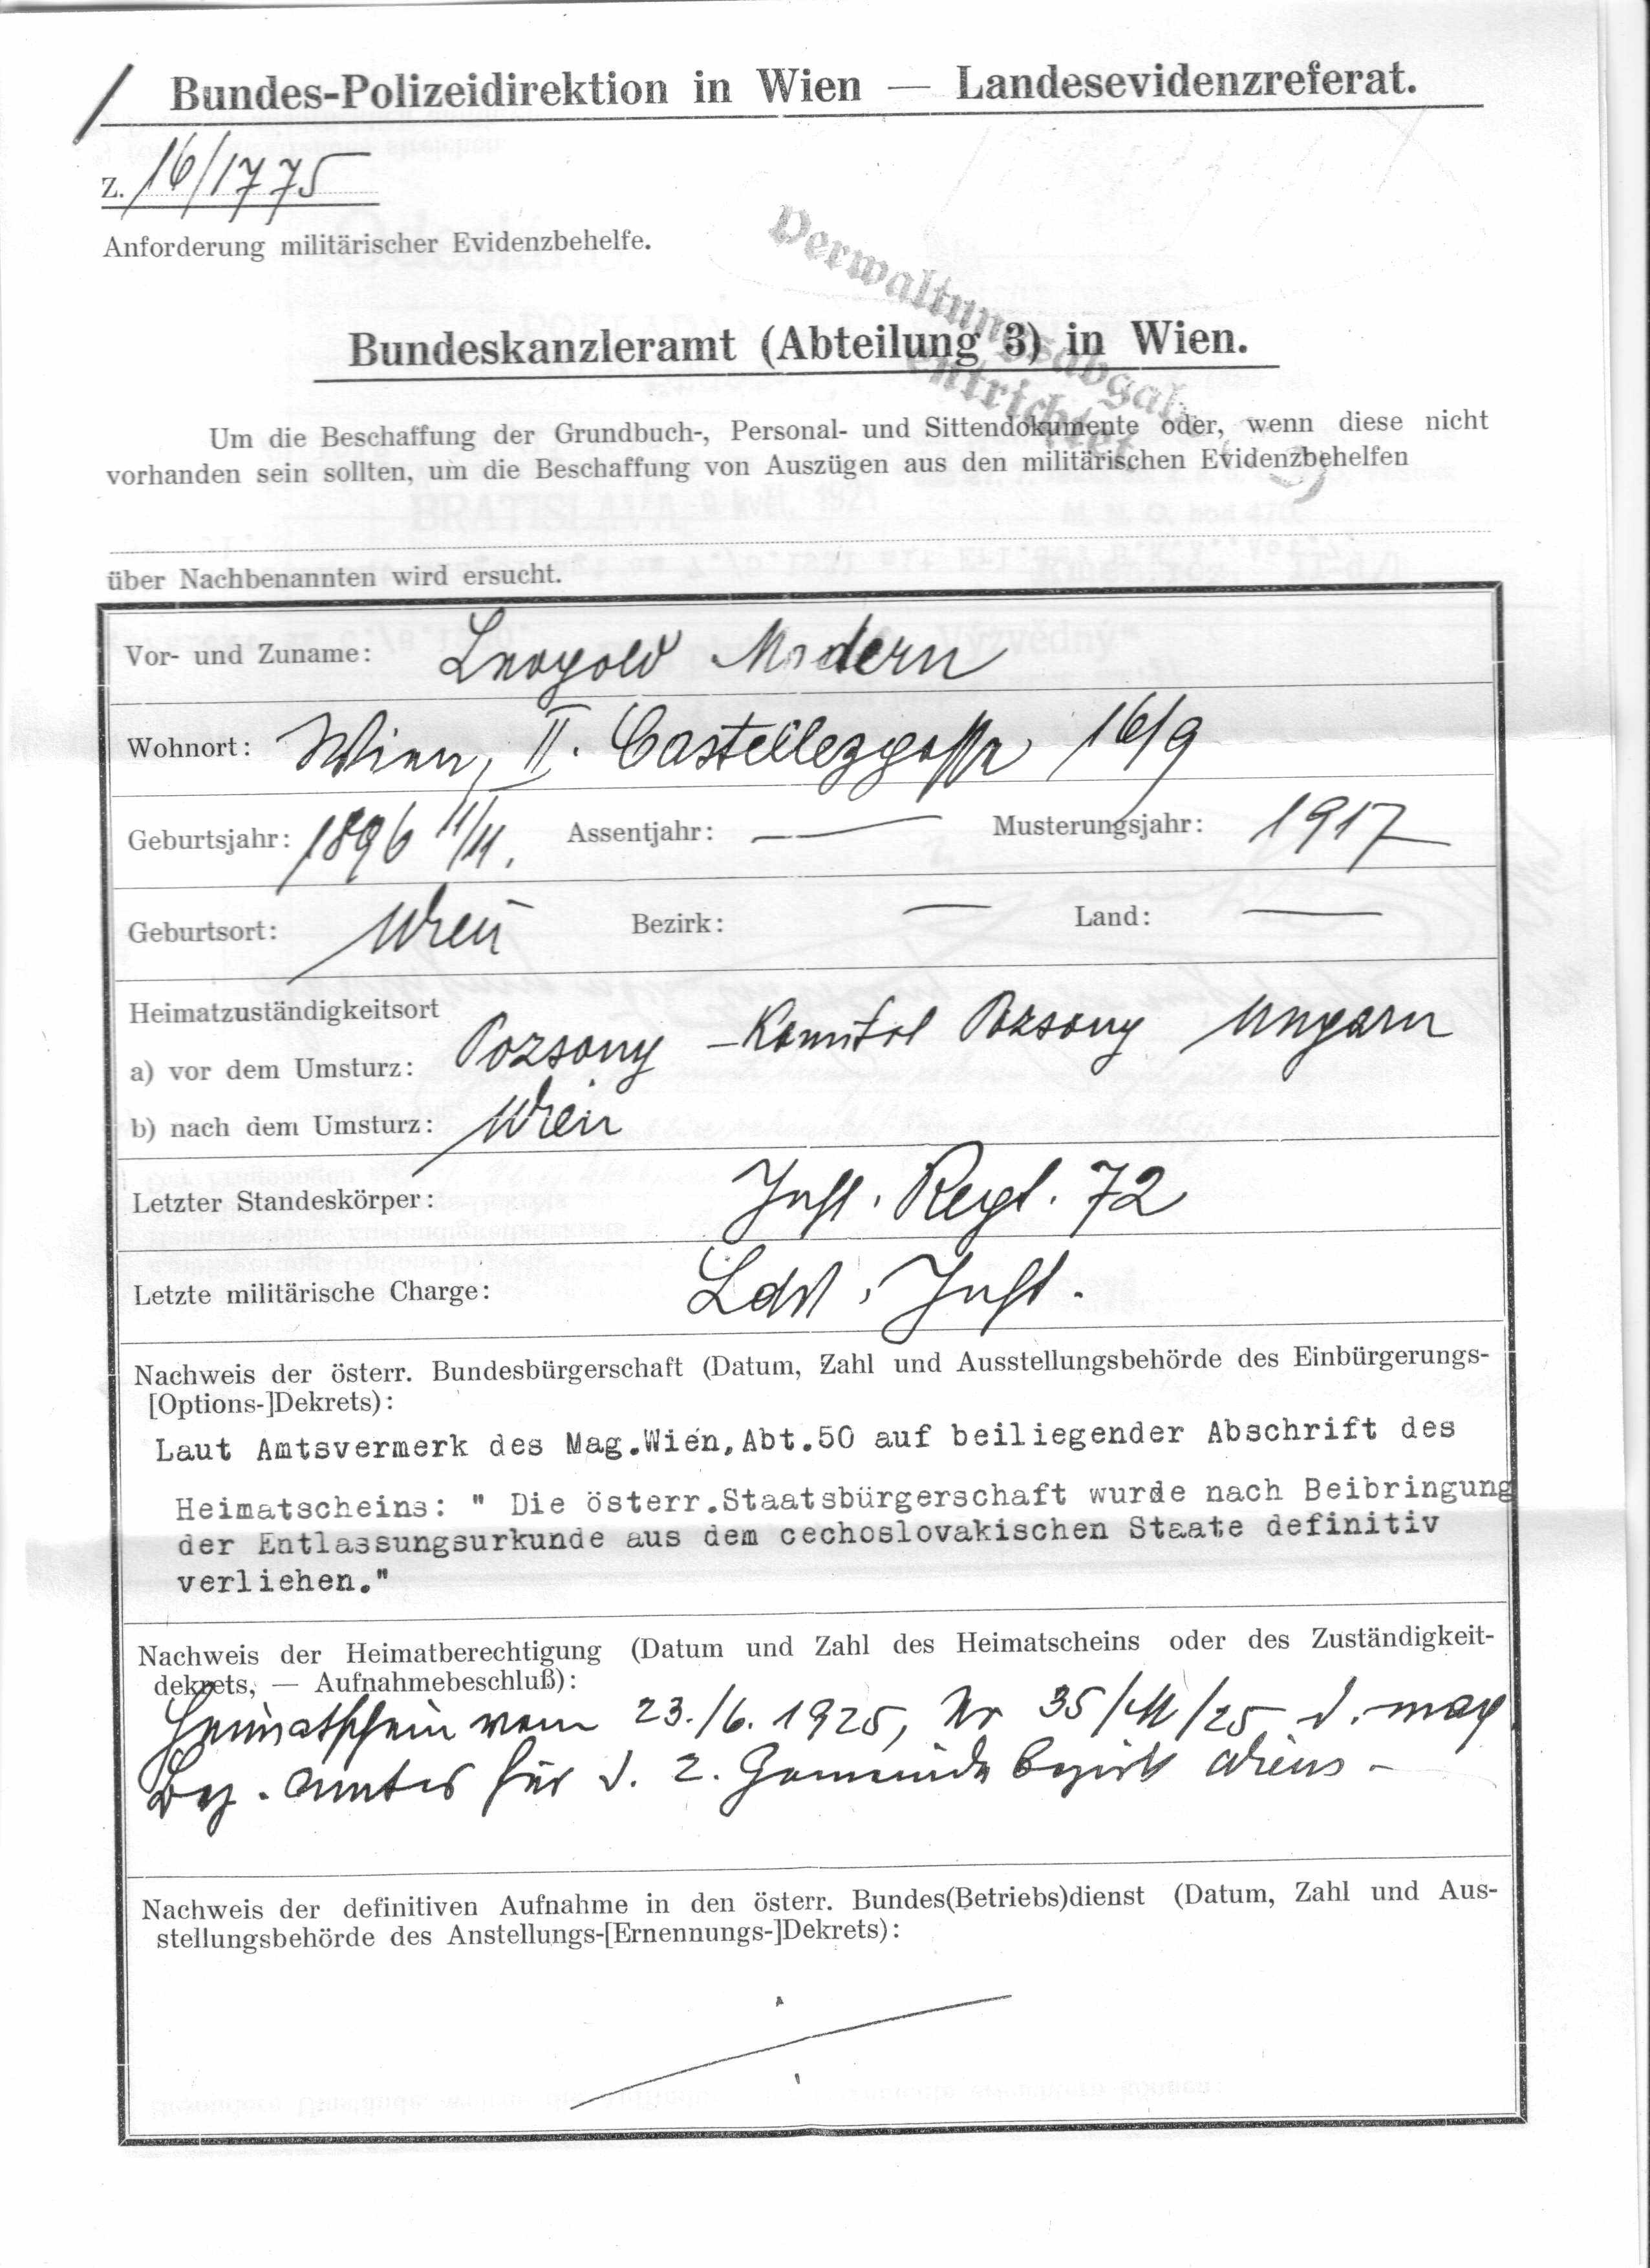 Bundes-Polizeidirektion in Wien — Landesevidenzreferat.
Z. 16/1775
Anforderung militärischer Evidenzbehelfe.
Verwaltungsabgabe
entrichtet
Bundeskanzleramt (Abteilung 3) in Wien.
Um die Beschaffung der Grundbuch-, Personal- und Sittendokumente oder, wenn diese nicht
vorhanden sein sollten, um die Beschaffung von Auszügen aus den militärischen Evidenzbehelfen
über Nachbenannten wird ersucht.
Vor- und Zuname: Leopold Modern
Wohnort: Wien, II. Castellezgasse 16/9
Geburtsjahr: 1896 11/11. Assentjahr: — Musterungsjahr: 1917
Geburtsort: Wien Bezirk: — Land: —
Heimatzuständigkeitsort
a) vor dem Umsturz: Pozsony - Komitat Pozsony Ungarn
b) nach dem Umsturz: Wien
Letzter Standeskörper: Inft. Regt. 72
Letzte militärische Charge: Ldst. Inft.
Nachweis der österr. Bundesbürgerschaft (Datum, Zahl und Ausstellungsbehörde des Einbürgerungs-
[Options-]Dekrets):
Laut Amtsvermerk des Mag.Wien,Abt.50 auf beiliegender Abschrift des
Heimatscheins: " Die österr.Staatsbürgerschaft wurde nach Beibringung
der Entlassungsurkunde aus dem cechoslovakischen Staate definitiv
verliehen."
Nachweis der Heimatberechtigung (Datum und Zahl des Heimatscheins oder des Zuständigkeit-
dekrets, — Aufnahmebeschluß):
Heimatschein vom 23./6. 1925, Nr 35/M/25 d. mag.
Bez. Amtes für d. 2. Gemeindebezirk Wiens -
Nachweis der definitiven Aufnahme in den österr. Bundes(Betriebs)dienst (Datum, Zahl und Aus-
stellungsbehörde des Anstellungs-[Ernennungs-]Dekrets):